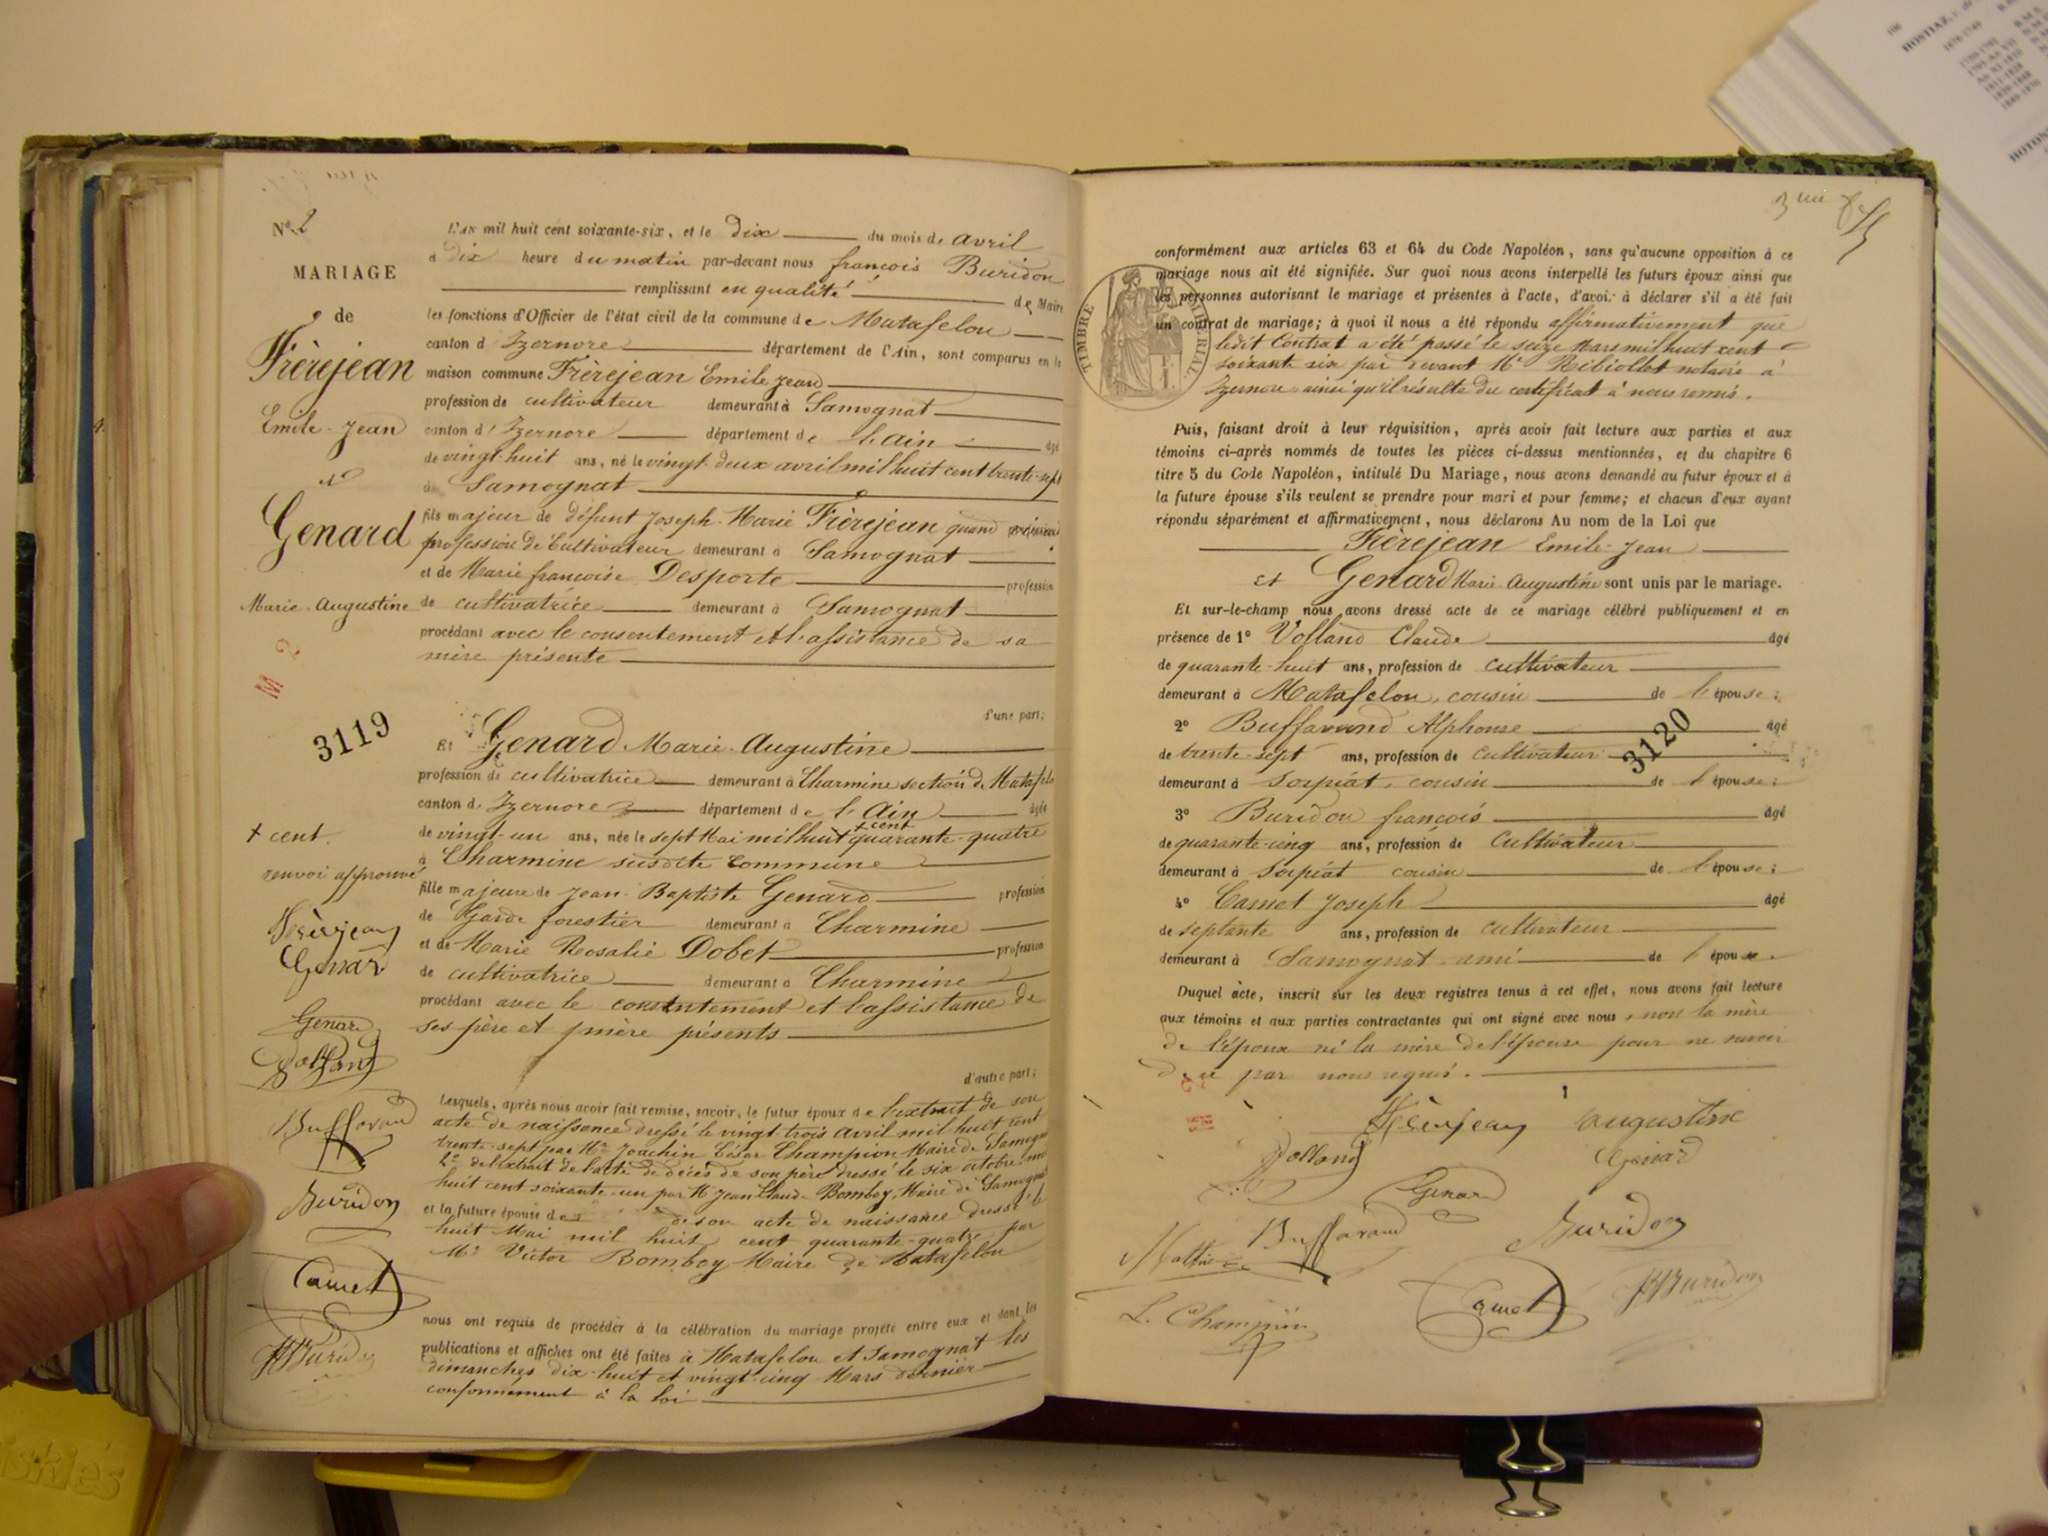 N° 2
MARIAGE
de
Frèrejean
Emile-Jean
et
Genard
Marie-Augustine
M 2
3119
+ cent.
renvoi approuvé
Frèrejean
Genard
Genard
Volland
Buffavand
Buridon
Carnet
Buridon
L'an mil huit cent soixante-six, et le dix du mois de avril
à Dix heure du matin par-devant nous françois Buridon
remplissant en qualité de Maire
les fonctions d'Officier de l'état civil de la commune de Matafelon
canton d'Izernore département de l'Ain, sont comparus en la
maison commune Frèrejean Emile Jean
profession de cultivateur demeurant à Samognat
canton d'Izernore département de l'Ain âgé
de vingt-huit ans, né le vingt-deux avril mil huit cent trente-sept
à Samognat
fils majeur de défunt Joseph-Marie Frèrejean quand vivait
profession de Cultivateur demeurant à Samognat
et de Marie françoise Desporte profession
de cultivatrice demeurant à Samognat
procédant avec le consentement et l'assistance de sa
mère présente
d'une part;
Et Genard Marie-Augustine
profession de cultivatrice demeurant à Charmine section de Matafelon
canton d'Izernore département de l'Ain âgée
de vingt-un ans, née le sept Mai mil huit + cent quarante-quatre
à Charmine susdite commune
fille majeure de Jean-Baptiste Genard profession
de Garde forestier demeurant à Charmine
et de Marie Rosalie Dobet profession
de cultivatrice demeurant à Charmine
procédant avec le consentement et l'assistance de
ses père et mère présents
d'autre part;
Lesquels, après nous avoir fait remise, savoir, le futur époux de l'extrait de son
acte de naissance dressé le vingt-trois avril mil huit cent
trente-sept par Mr Joachin César Champion Maire de Samognat
2° de l'extrait de l'acte de décès de son père dressé le six octobre mil
huit cent soixante-un par Mr Jean Claude Bomboy Maire de Samognat
et la future épouse de son acte de naissance dressé le
huit Mai mil huit cent quarante-quatre par
Mr Victor Bomboy Maire de Matafelon
nous ont requis de procéder à la célébration du mariage projeté entre eux et dont les
publications et affiches ont été faites à Matafelon et Samognat les
dimanches dix-huit et vingt-cinq Mars dernier
conformément à la loi
3me
conformément aux articles 63 et 64 du Code Napoléon, sans qu'aucune opposition à ce
mariage nous ait été signifiée. Sur quoi nous avons interpellé les futurs époux ainsi que
les personnes autorisant le mariage et présentes à l'acte, d'avoir à déclarer s'il a été fait
un contrat de mariage; à quoi il nous a été répondu affirmativement que
ledit Contrat a été passé le seize Mars mil huit cent
soixante six par devant Me Ribiollet notaire à
Izernore ainsi qu'il résulte du certificat à nous remis.
TIMBRE IMPÉRIAL
Puis, faisant droit à leur réquisition, après avoir fait lecture aux parties et aux
témoins ci-après nommés de toutes les pièces ci-dessus mentionnées, et du chapitre 6
titre 5 du Code Napoléon, intitulé Du Mariage, nous avons demandé au futur époux et à
la future épouse s'ils veulent se prendre pour mari et pour femme; et chacun d'eux ayant
répondu séparément et affirmativement, nous déclarons Au nom de la Loi que
Frèrejean Emile-Jean
et Genard Marie Augustine sont unis par le mariage.
Et sur-le-champ nous avons dressé acte de ce mariage célébré publiquement et en
présence de 1° Volland Claude âgé
de quarante-huit ans, profession de cultivateur
demeurant à Matafelon, cousin de l'épouse;
2° Buffavand Alphonse âgé
de trente-sept ans, profession de cultivateur
demeurant à Sorpiat, cousin de l'épouse;
3120
3° Buridon françois âgé
de quarante-cinq ans, profession de Cultivateur
demeurant à Sorpiat cousin de l'épouse;
4° Carnet Joseph âgé
de septante ans, profession de cultivateur
demeurant à Samognat ami de l'épouse.
Duquel acte, inscrit sur les deux registres tenus à cet effet, nous avons fait lecture
aux témoins et aux parties contractantes qui ont signé avec nous, non la mère
de l'époux ni la mère de l'épouse pour ne savoir
de ce par nous requis.
Frèrejean Augustine
Volland Genard
Genard
Buffavand Buridon
Mathieu
Carnet Buridon
L. Champion